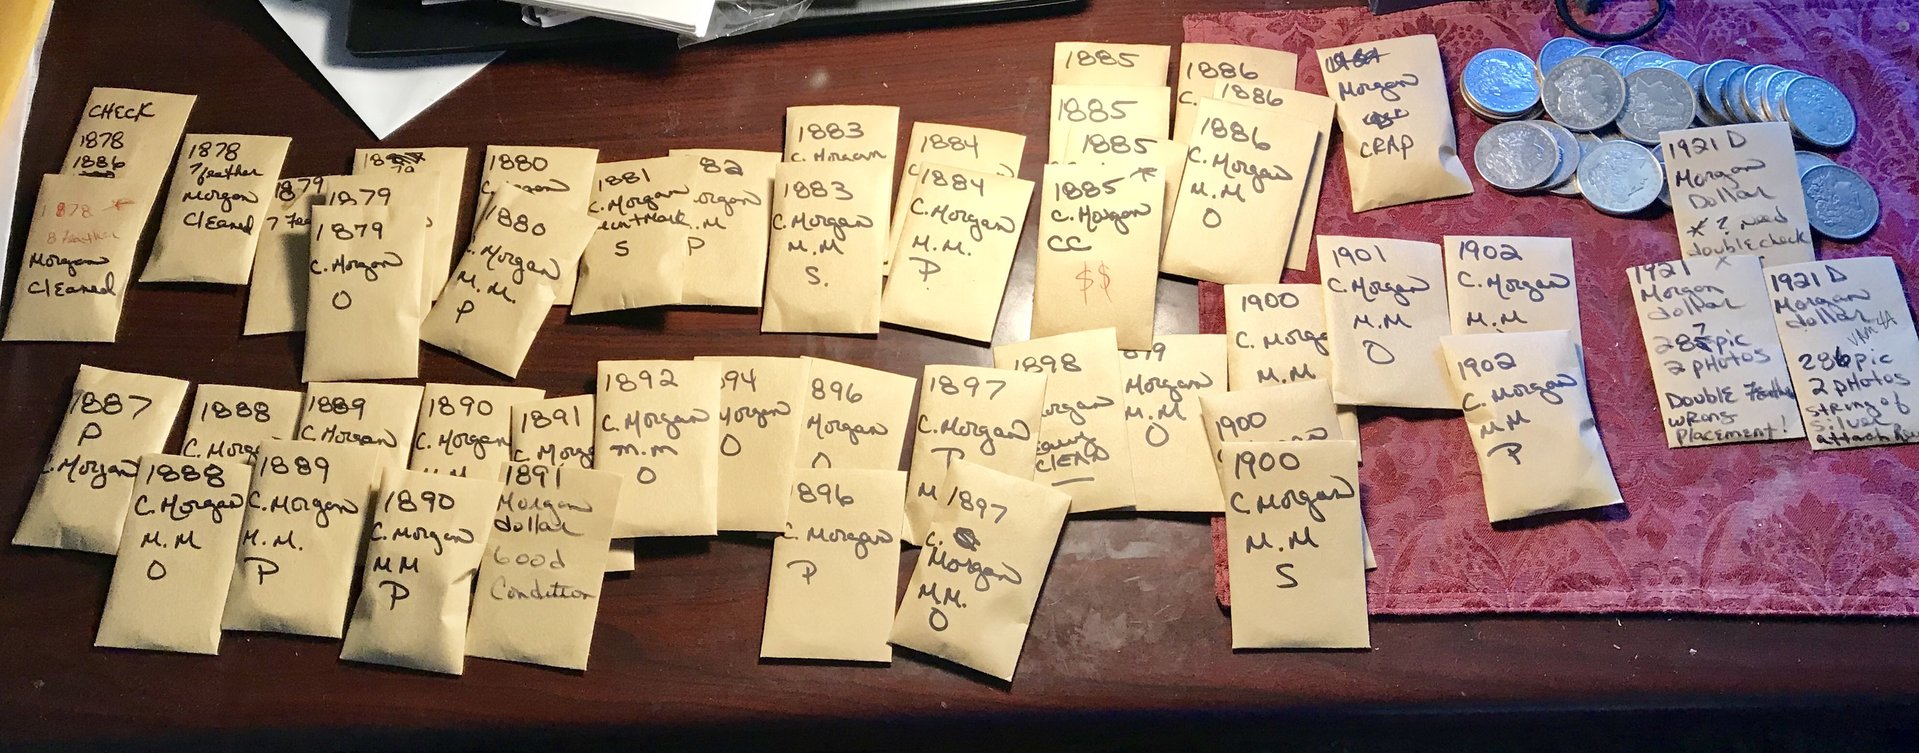 CHECK
1878
1886
1878
8 feather
Morgan
Cleaned
1878
7 feather
Morgan
Cleaned
1879
7 Fea
1879
1879
C. Morgan
O
1880
C.
1880
Morgan
M.M.
P
1881
C. Morgan
S
82
organ
.M
P
1883
C. Morgan
1883
C. Morgan
M.M
S.
1884
1884
C. Morgan
M.M.
P
1885
1885
1885
1885 *
C. Morgan
CC
$$
1886
C.
1886
1886
C. Morgan
M.M
O
Morgan
CRAP
1921 D
Morgan
Dollar
* ? need
doublecheck
x
1921
Morgan
dollar
pic
2 pHotos
Double Feathe
wrong
Placement!
1921 D
Morgan
dollar
VAM 4A
286pic
2 pHotos
string of
silver
attach
1900
C. Morga
M.M
1901
C. Morgan
M.M
O
1902
C. Morgan
M.M
1902
C. Morgan
MM
P
1887
P
C. Morgan
1888
C. Morga
1888
C. Morgan
M.M
O
1889
C. Morgan
1889
C. Morgan
M.M.
P
1890
C. Morgan
M.M
1890
C. Morgan
MM
P
1891
C. Morga
1891
Morgan
dollar
Good
Condition
1892
C. Morgan
M.M
O
94
Morgan
O
896
Morgan
O
896
C. Morgan
P
1897
C. Morgan
P
M
1897
C.
Morgan
M.M.
O
1898
organ
CLEAN
Morgan
M.M
O
1900
1900
C Morgan
M.M
S